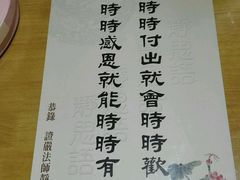 時時付出就會時時歡
時時感恩就能時時有
恭錄
證嚴法師靜